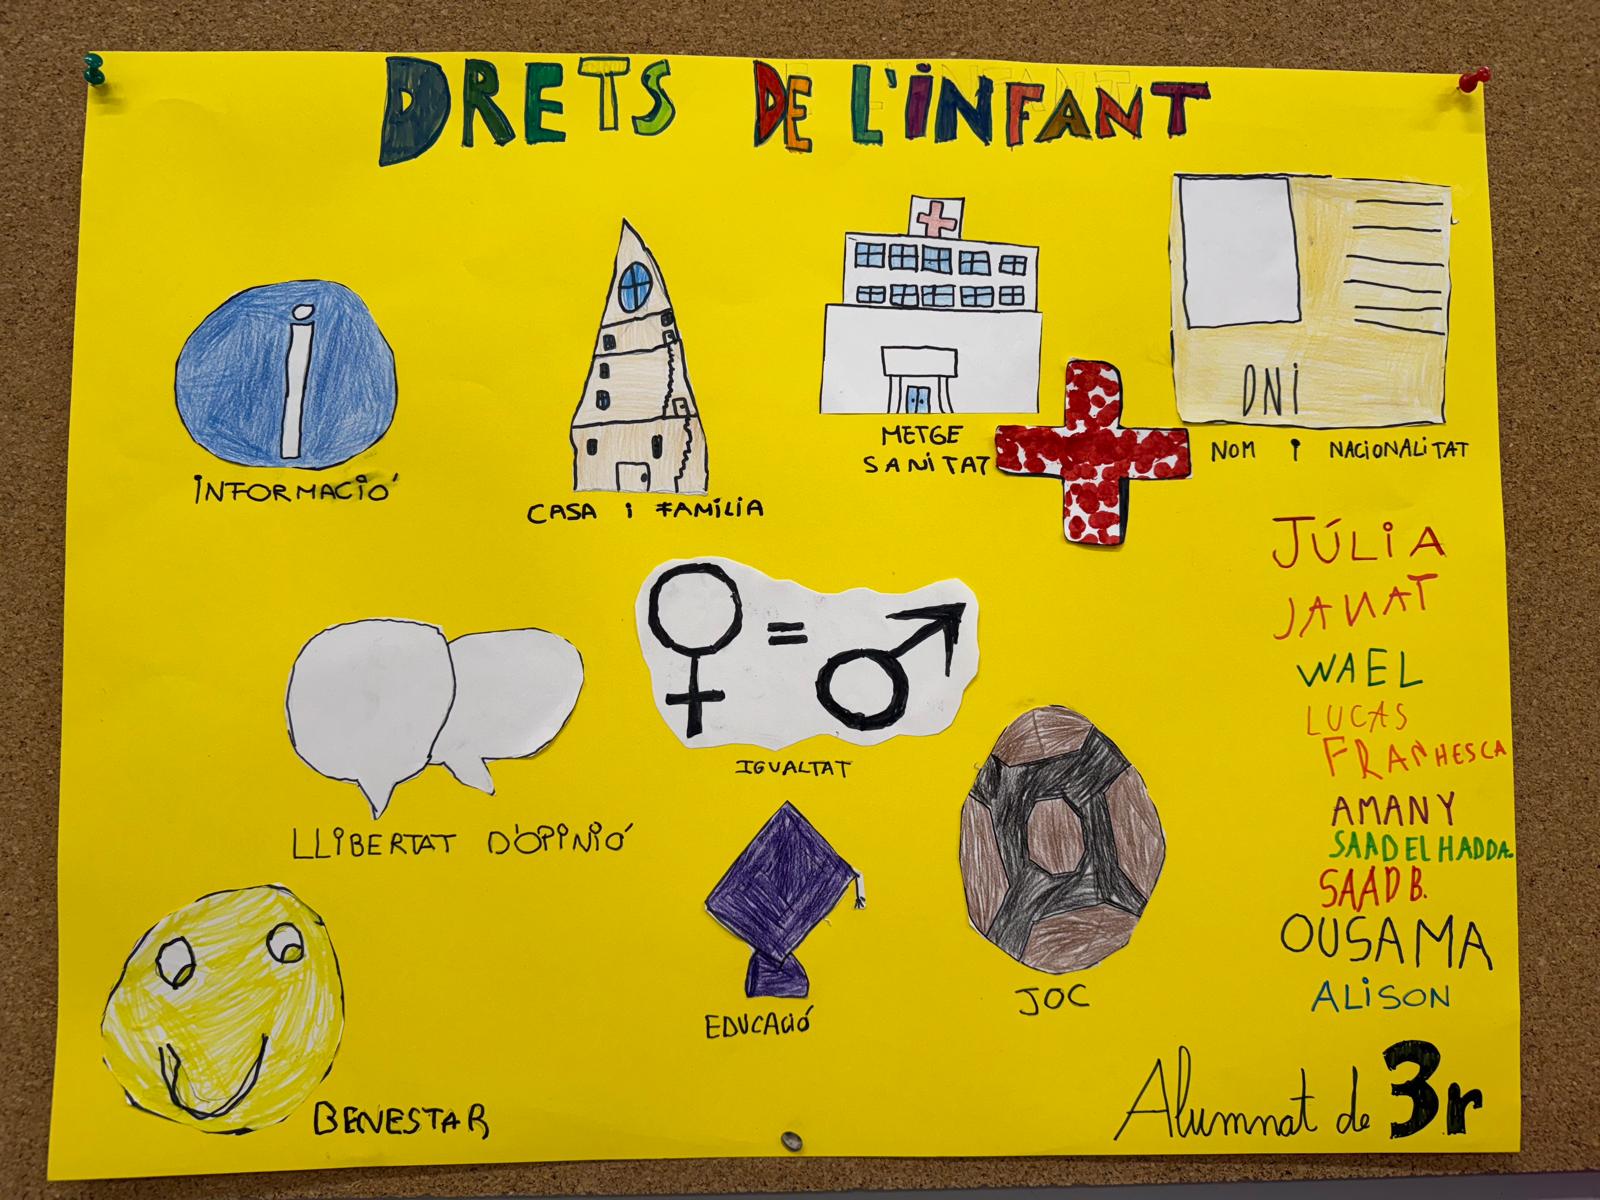 DRETS DE L'INFANT
INFORMACIÓ
CASA I FAMÍLIA
METGE
SANITAT
DNI
NOM I NACIONALITAT
LLIBERTAT D'OPINIÓ
=
IGUALTAT
EDUCACIÓ
JOC
BENESTAR
JÚLIA
JANAT
WAEL
LUCAS
FRANHESCA
AMANY
SAAD EL HADDA.
SAAD B.
OUSAMA
ALISON
Alumnat de 3r